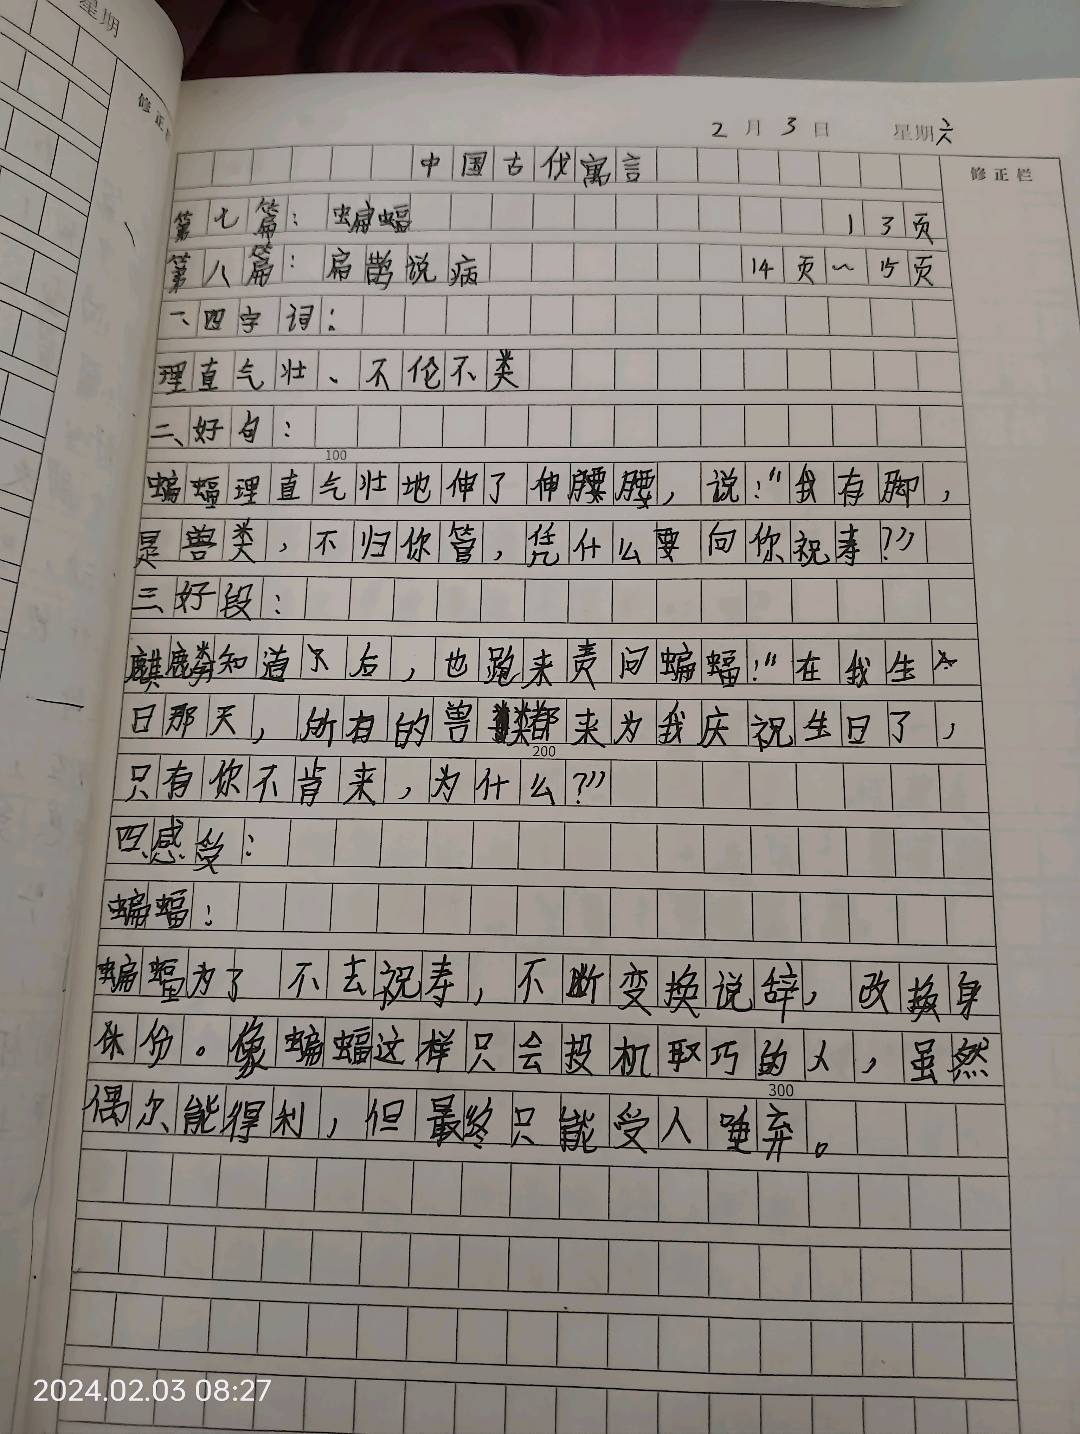 星期
修正
2月3日 星期六
修正栏
中国古代寓言
第七篇：蝙蝠 13页
第八篇：扁鹊说病 14页～15页
一、四字词：
理直气壮、不伦不类
二、好句：
100
蝙蝠理直气壮地伸了伸腰腰，说：“我有脚，
是兽类，不归你管，凭什么要向你祝寿？”
三、好段：
麒麟知道了后，也跑来责问蝙蝠：“在我生
日那天，所有的兽类都来为我庆祝生日了，
200
只有你不肯来，为什么？”
四、感受：
蝙蝠：
蝙蝠为了不去祝寿，不断变换说辞，改换身
份。像蝙蝠这样只会投机取巧的人，虽然
300
偶尔能得利，但最终只能受人唾弃。
2024.02.03 08:27